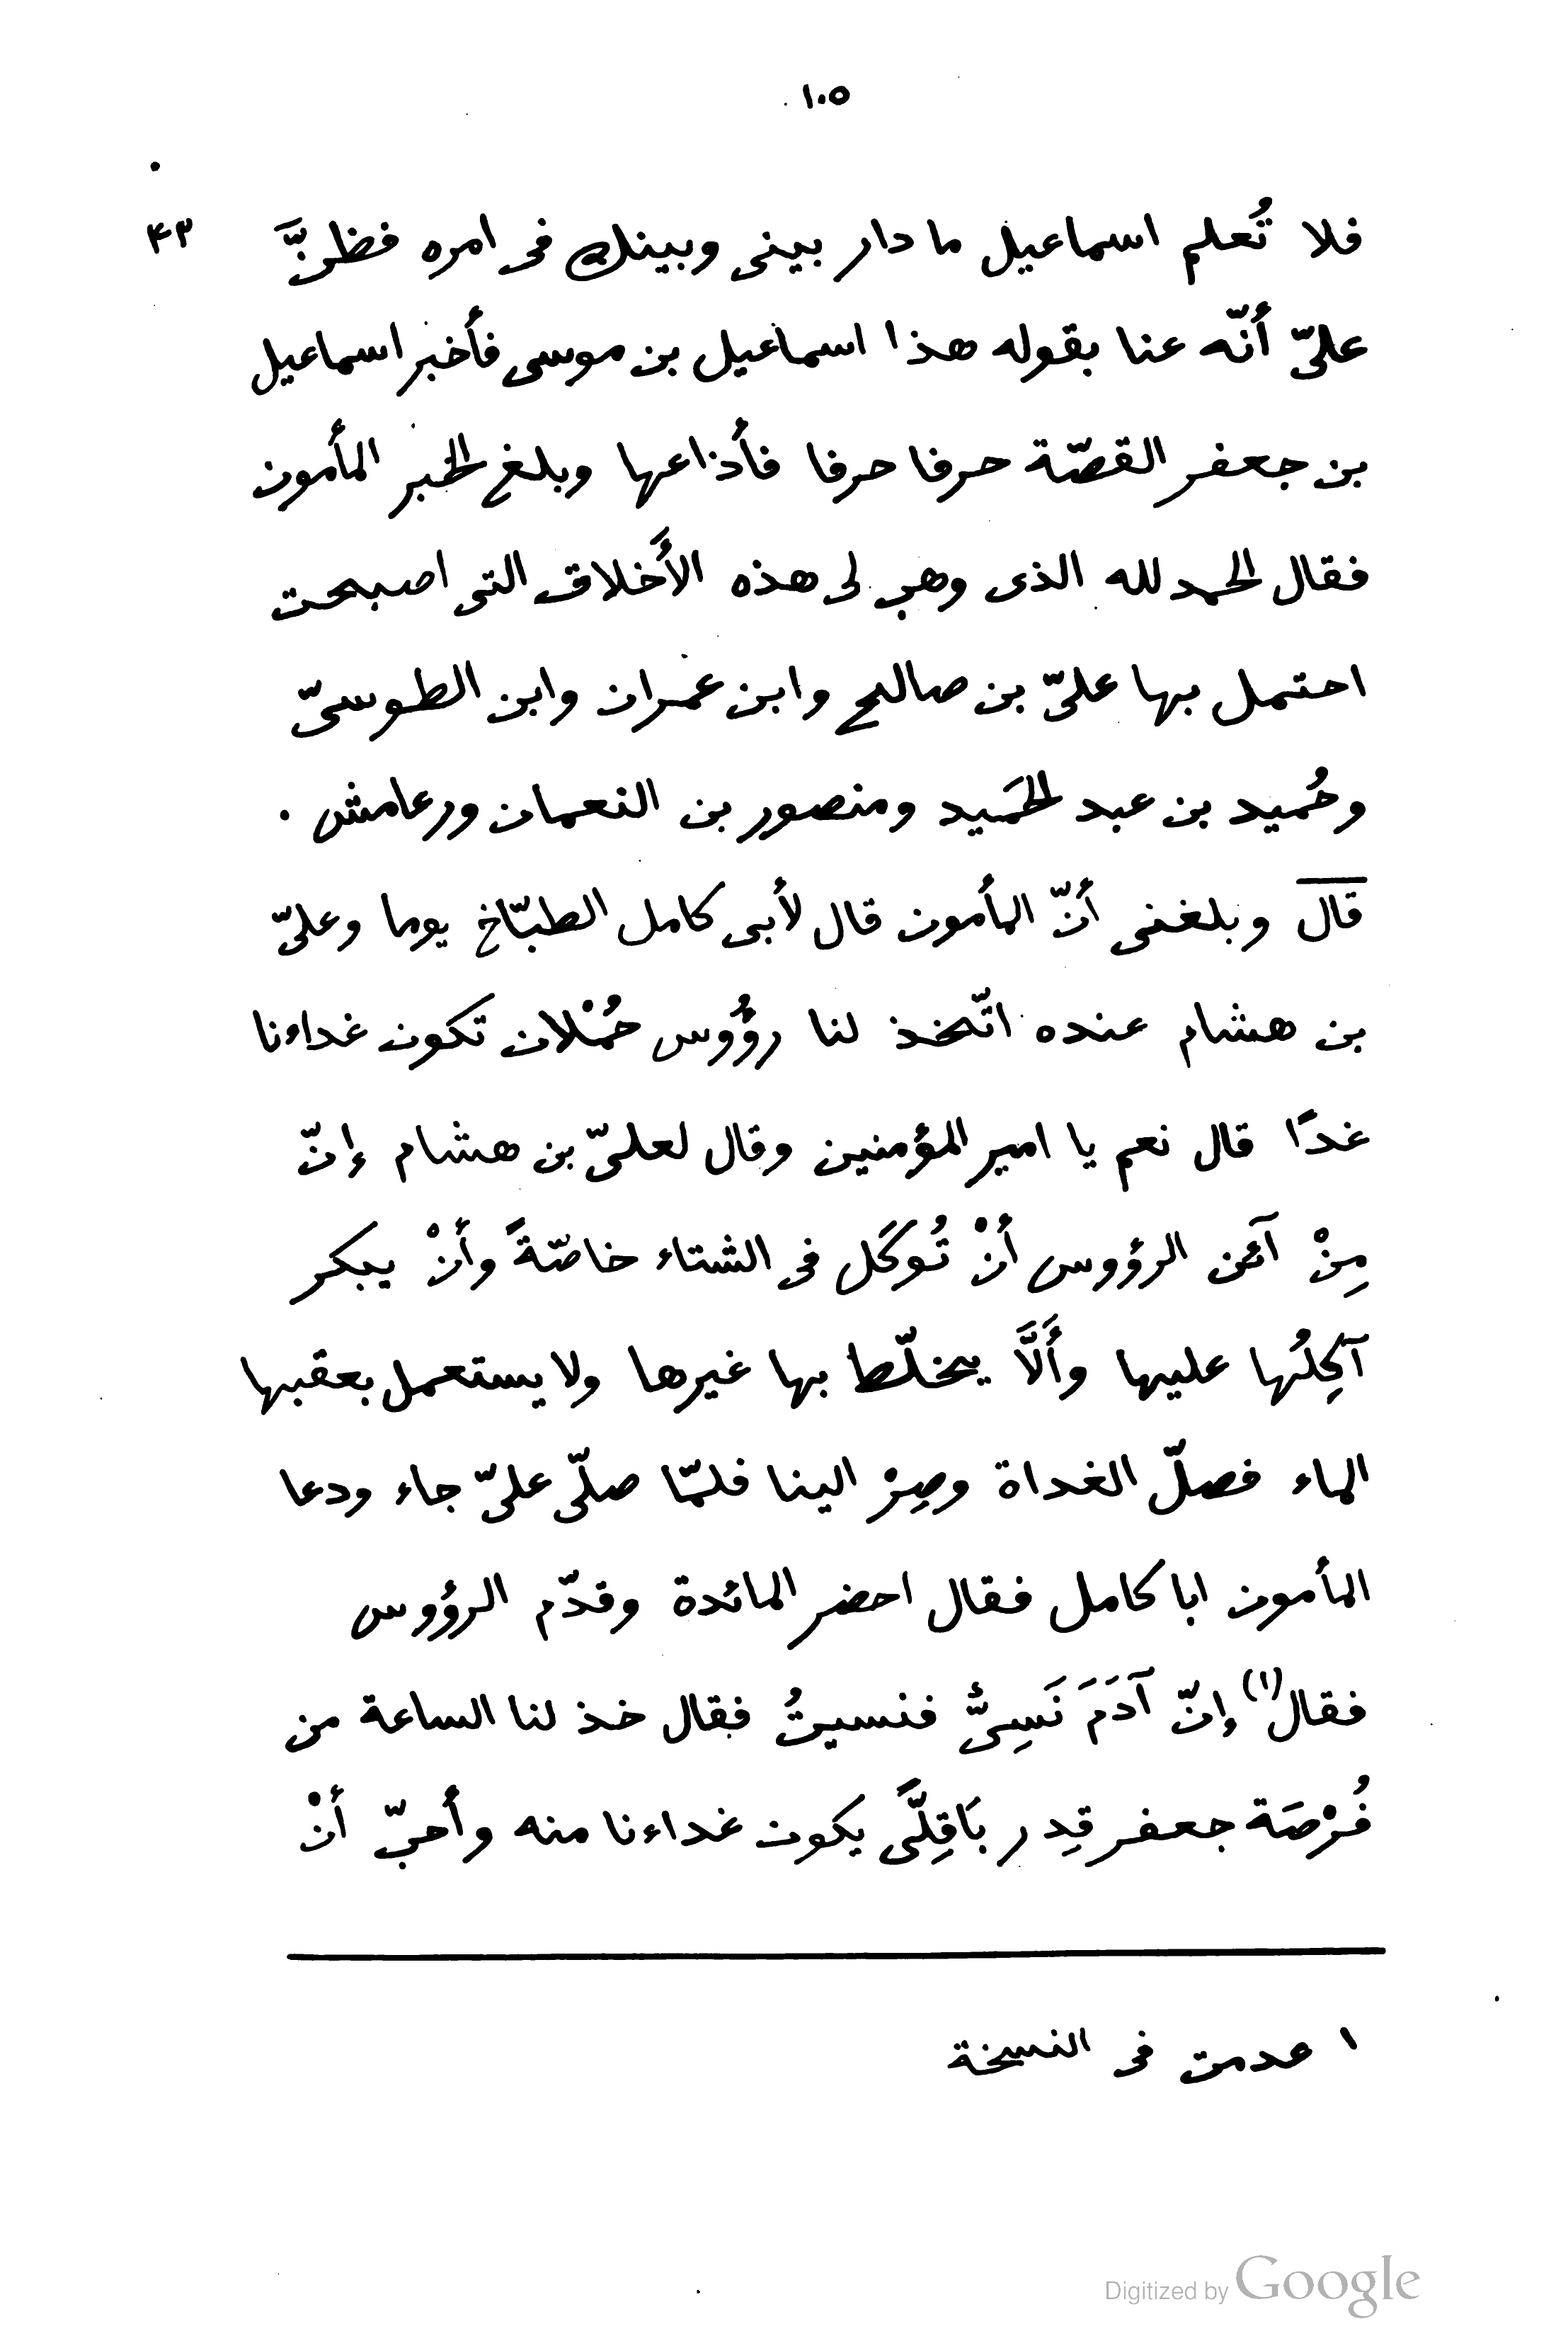 ١٠٥
فلا تُعلم اسماعيل ما دار بينى وبينك فى امره فظنَّ ٤٣
علىّ أنّه عنا بقوله هذا اسماعيل بن موسى فأخبر اسماعيل
بن جعفر القصّة حرفا حرفا فأذاعها وبلغ الخبر المأمون
فقال الحمد لله الذى وهب لى هذه الأَخلاق التى اصبحت
احتمل بها علىّ بن صالح وابن عمران وابن الطوسىّ
وحُميد بن عبد الحَميد ومنصور بن النعمان ورعامش .
قال وبلغنى أنّ المأمون قال لأبى كامل الطبّاخ يوما وعلىّ
بن هشام عنده اتّخذ لنا رؤُوس حُمْلان تكون غداءنا
غدًا قال نعم يا امير المؤمنين وقال لعلىّ بن هشام إنّ
مِنْ آئين الرؤوس أنْ تُوكَل فى الشتاء خاصّةً وأنْ يبكر
آكِلُها عليها وأَلَّا يخلّط بها غيرها ولا يستعمل بعقبها
الماء فصلّ الغداة وصِرْ الينا فلمّا صلّى علىّ جاء ودعا
المأمون ابا كامل فقال احضر المائدة وقدّم الرؤوس
فقال(١) إنّ آدَمَ نَسِىَّ فنسيتُ فقال خذ لنا الساعة من
فُرْصَة جعفر قِدر بَاقِلَّى يكون غداءنا منه وأحبّ أنْ
١ عدمت فى النسخة
Digitized by Google